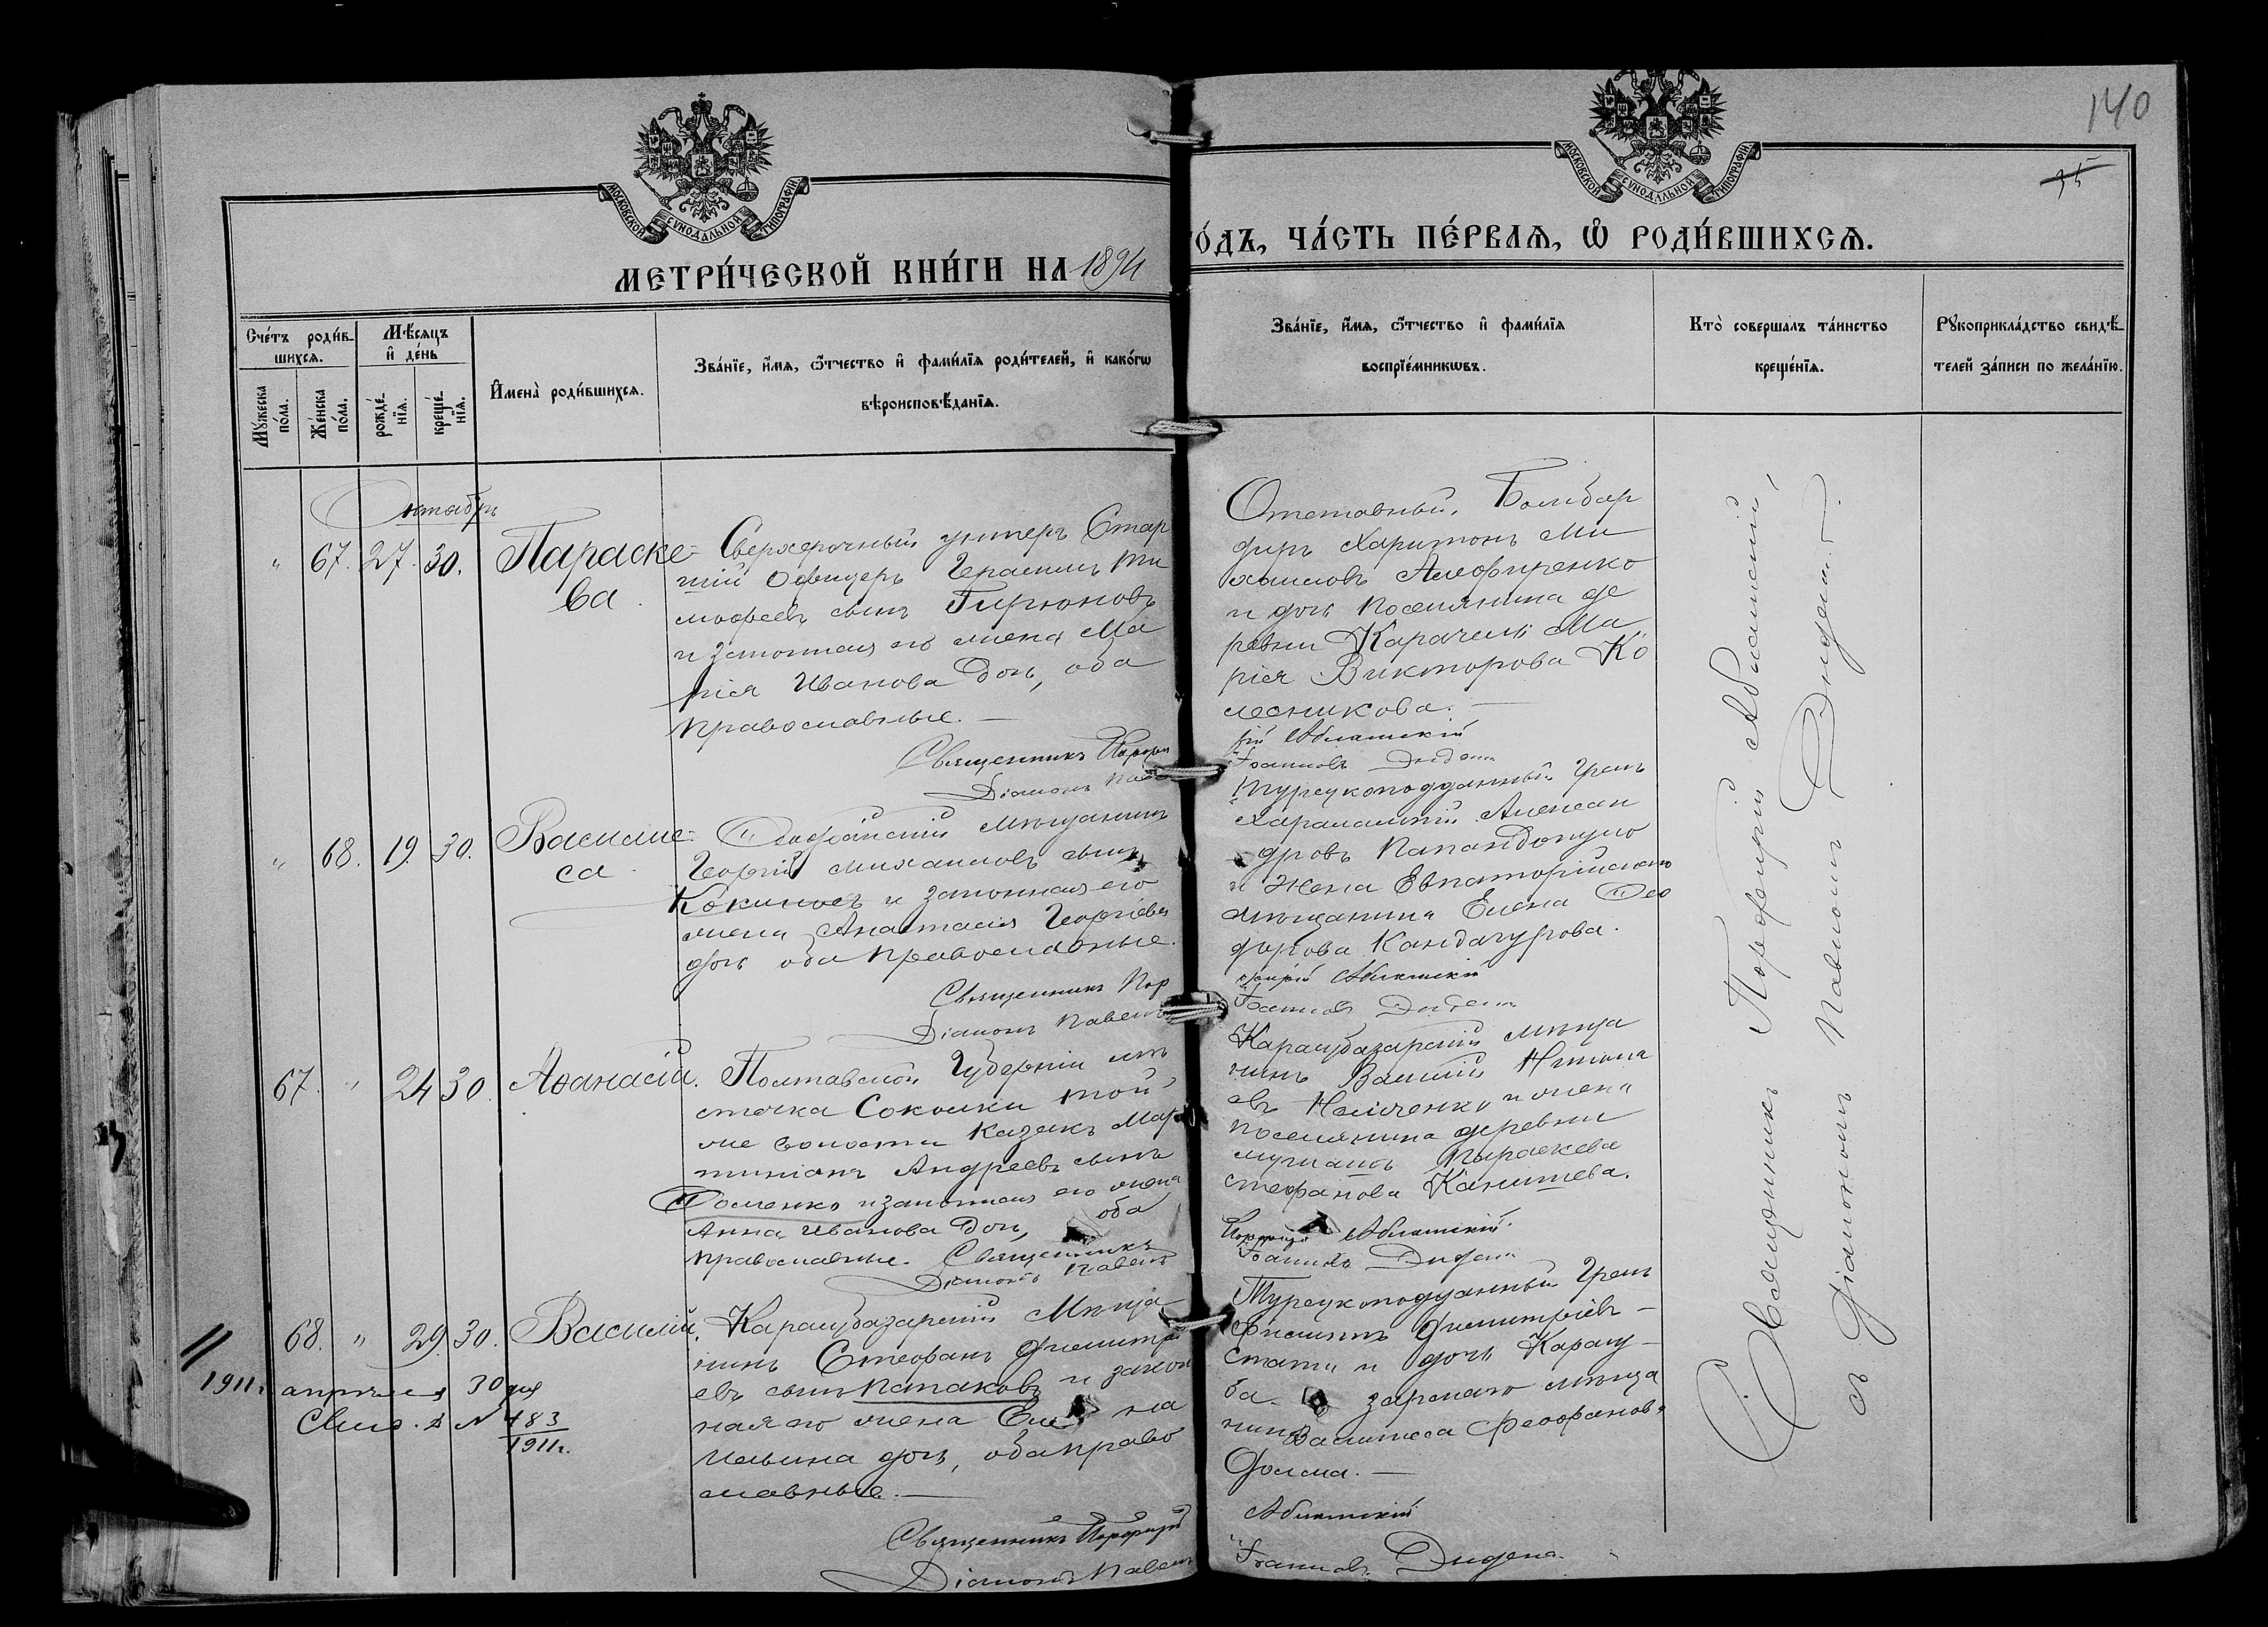 140
35
МОСКОВСКОЙ СѴНОДАЛЬНОЙ ТИПОГРАФІИ.
МОСКОВСКОЙ СѴНОДАЛЬНОЙ ТИПОГРАФІИ.
МЕТРИ́ЧЕСКОЙ КНИ́ГИ НА 1894
О́ДЪ, ЧА́СТЬ ПЕ́РВАѦ, Ѡ҆ РОДИ́ВШИХСѦ.
Сче́тъ роди́в-
шихсѧ.
Мꙋжеска по́ла.
Же́нска по́ла.
Мѣ́сѧцъ
и҆ де́нь
рожде́-
нїѧ.
креще́-
нїѧ.
И҆мена̀ роди́вшихсѧ.
Зва́нїе, и҆́мѧ, ѻ҆́тчество и҆ фами́лїѧ роди́телей, и҆ како́гѡ
вѣроисповѣ́данїѧ.
Зва́нїе, и҆́мѧ, ѻ҆́тчество и҆ фами́лїѧ
воспрїе́мникѡвъ.
Кто̀ соверша́лъ та́инство
креще́нїѧ.
Рꙋкоприкла́дство свидѣ́-
телей за́писи по жела́нїю.
Октябрь
" 67. 27. 30. Параске-
ва.
Сверхсрочный унтеръ Стар
шій Офицеръ Герасимъ Ти
мофеевъ сынъ Гирюновъ
и законная его жена Ма
рія Иванова дочь, оба
православные. —
Священникъ Порфи
Діаконъ Павел
Отставный, Бомбар
диръ Харитонъ Ми
хаиловъ Алефиренко
и дочь поселянина де
ревни Карачель Ма
рія Викторова Ко
лесникова. —
рій Аблашскій
Іоанновъ Дидени
" 68. 19. 30. Василис-
са.
мѣщанинъ
Георгій Михаиловъ сынъ
Кокиносъ и законная его
жена Анастасія Георгіева
дочь оба православные.
Священникъ Пор
Діаконъ Павелъ
Турецкоподданный Грекъ
Харалампій Алексан
дровъ Пападопуло
и жена Евпаторійскаго
мѣщанина Елена Ѳео
дорова Кандагурова.
фирій Аблашскій
Іоанновъ Дидени
67. " 24 30. Аѳанасій.
Полтавской Губерніи мѣ
стечка Соколки той
же волости казакъ Мар
тиніанъ Андреевъ сынъ
и законная его жена
Анна Иванова дочь, оба
православные. Священникъ
Діаконъ Павелъ
Карасубазарскій мѣща
нинъ Василій Никола
евъ и жена
поселянина деревни
Параскева
Стефанова Канишева.
Порфирій Аблашскій.
Іоанновъ Дидени
68. " 29. 30. Василій.
Карасубазарскій мѣща
нинъ Стефанъ Димитрі
евъ сынъ Папаковъ и закон
ная его жена Еле на
Ильина дочь, оба право
славные. —
Священникъ Порфирій
Діаконъ Павелъ
Турецкоподданный Грекъ
Филиппъ Димитріевъ —
Стати и дочь Карасу-
ба- зарскаго мѣща
нина Василисса Феофанова
Фолма. —
Аблашскій
Іоанновъ Дидени.
1911г. апрѣля 30 дня
Свид. № 483
1911г.
Священникъ Порфирій Аблашскій,
съ Діакономъ Павломъ Дидени.